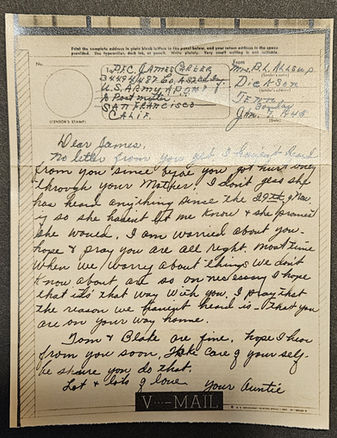 Print the complete address in plain block letters in the panel below, and your return address in the space provided. Use typewriter, dark ink, or pencil. Write plainly. Very small writing is not suitable.
No.
From
P.F.C. James
Mrs. P.L. Allsup
34494487 Co. A 52nd
(Sender's name)
U.S. Army A.P.O. #
Dickson
℅ Postmaster
Tenn.
San Francisco
Sunday
Calif.
Jan. 7, 1945
(CENSOR'S STAMP)
Dear James,
No letter from you yet, I haven't heard
from you since before you got hurt only
through your Mother. I don't gess she
has heard anything sense the 29th of Nov.
if so she havent let me know & she promest
she would. I am worried about you-
hope & pray you are all right. most time
when we worry about things we don't
know about are so on nessary I hope
that it's that way with you. I pray that
the reason we havent heard is that you
are on your way home.
Tom & Blake are fine. hope I hear
from you soon, Take care of your self.
be shure you do that,
Lot & lots of love
Your Auntie
V···—MAIL